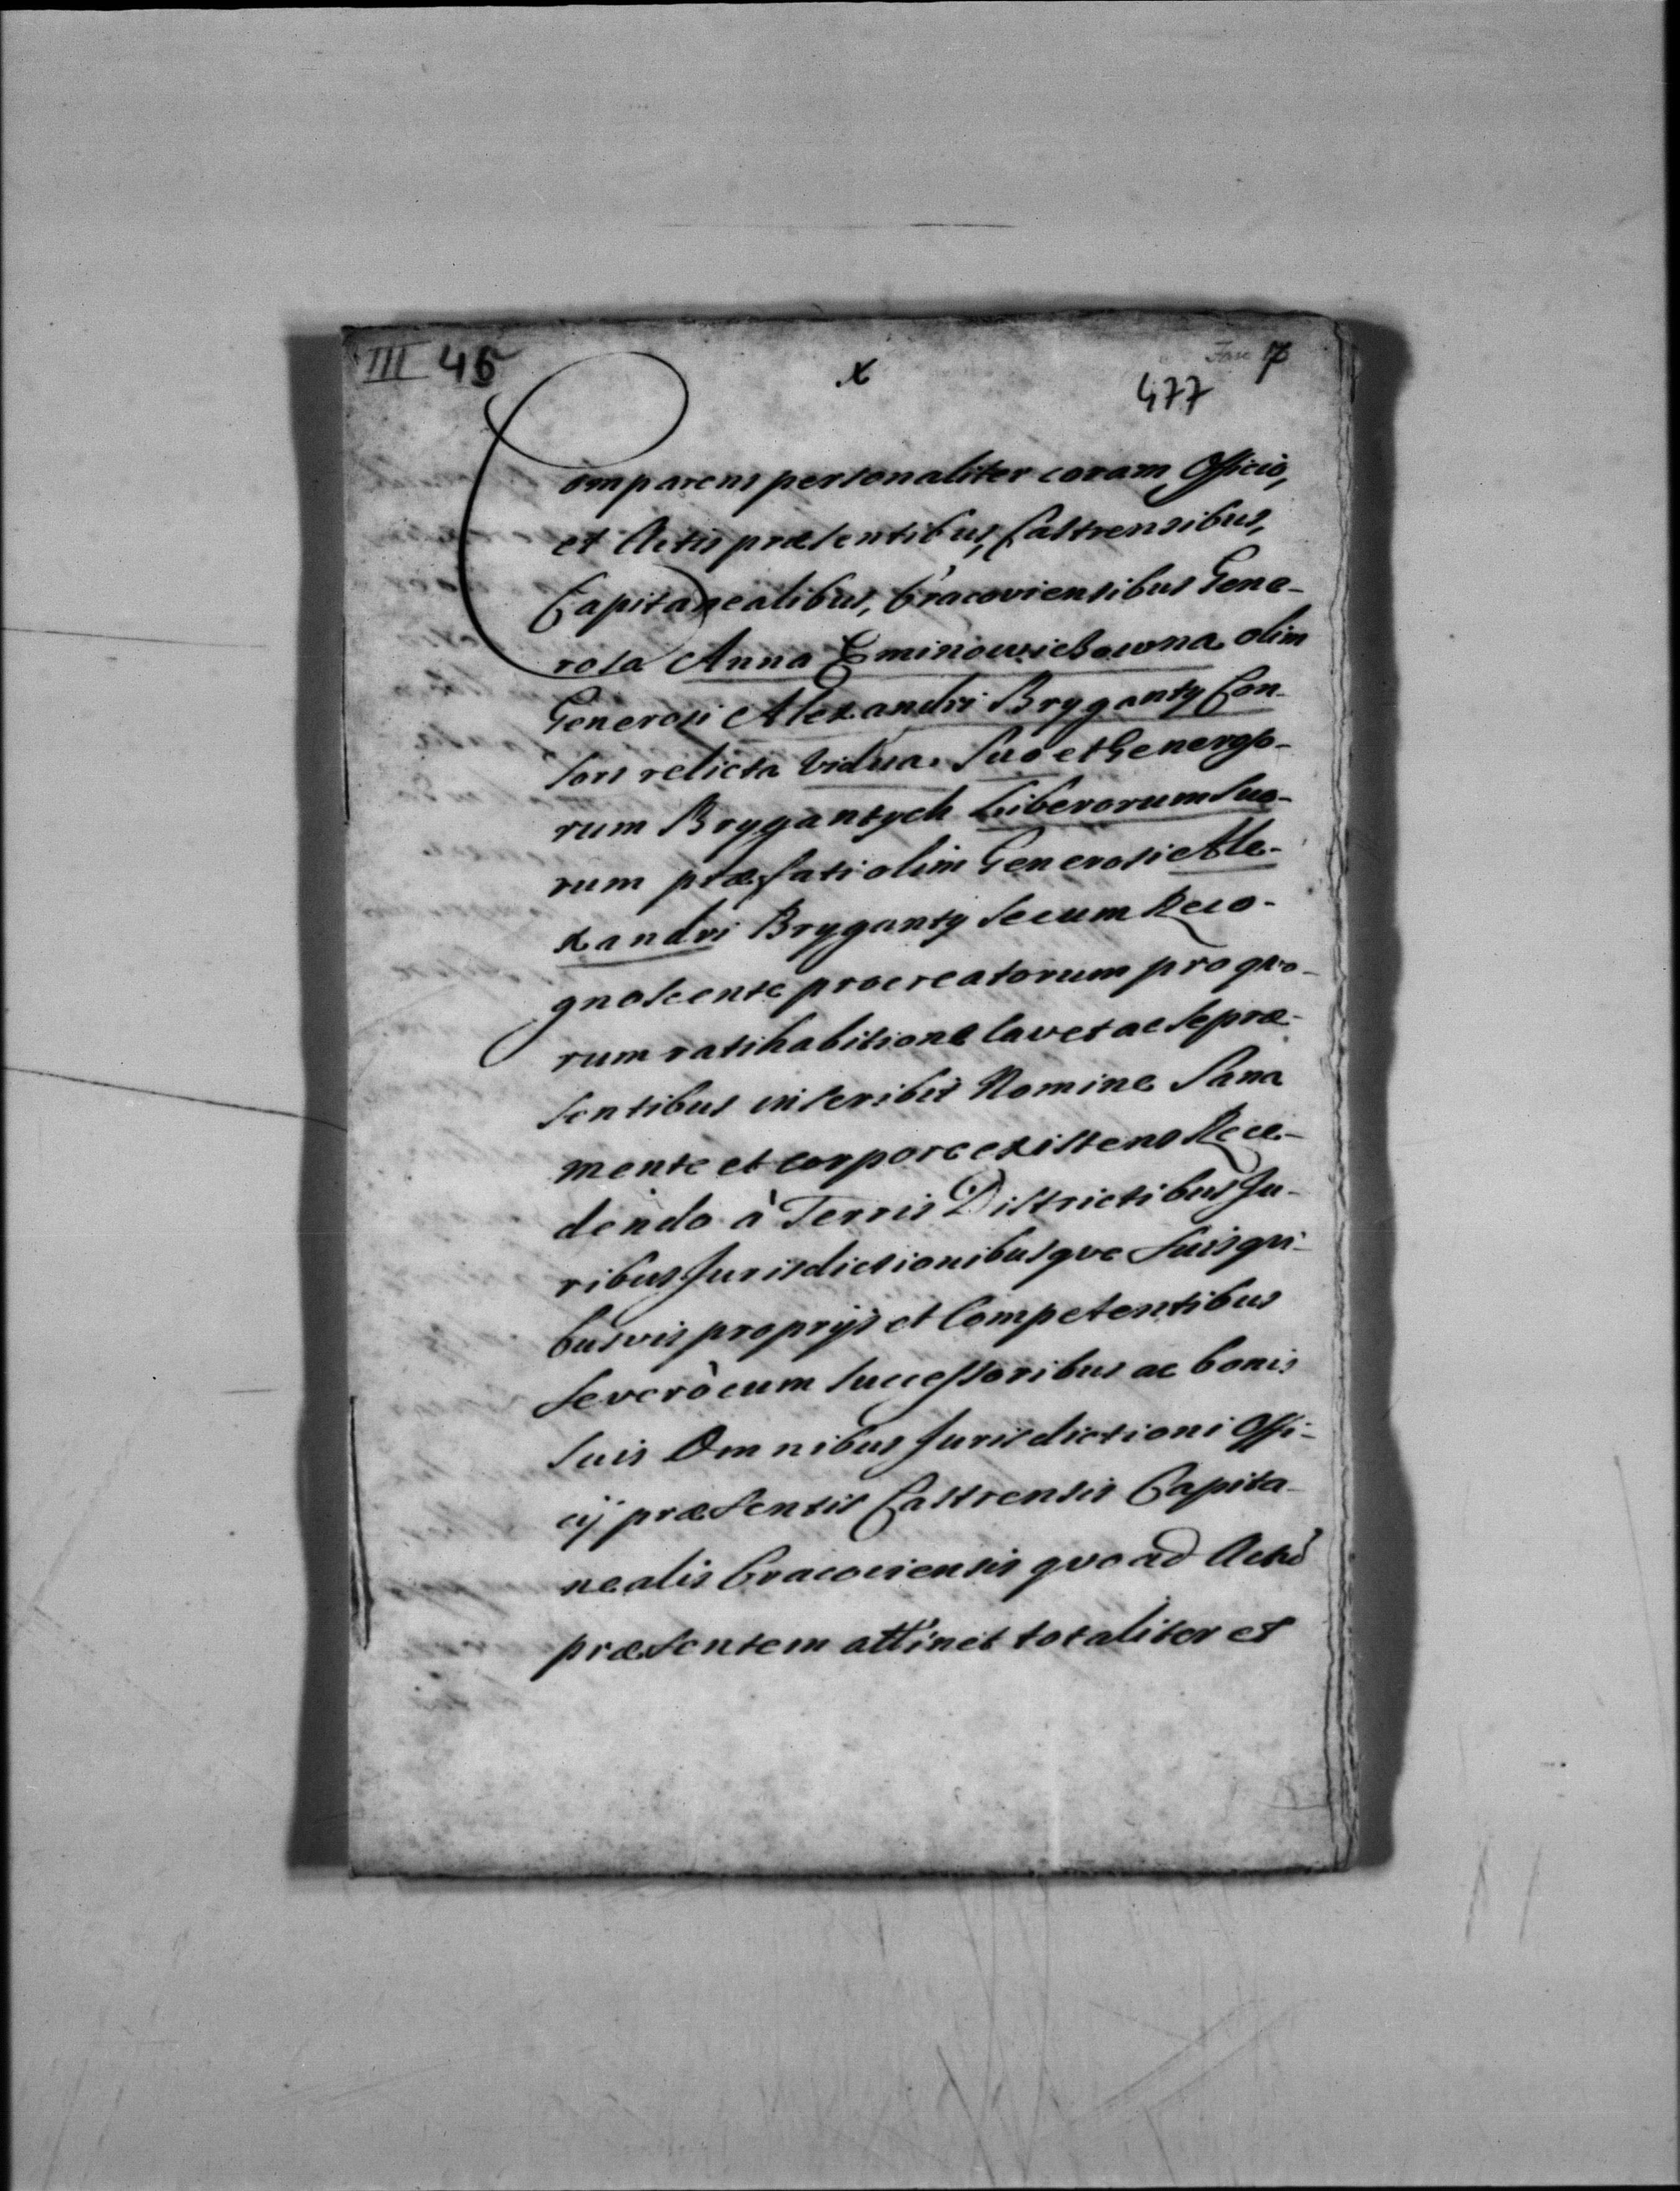 III 45
x
Fasc 17
477
Comparens personaliter coram Officio,
et Actis præsentibus, Castrensibus,
Capitanealibus, Cracoviensibus Gene-
rosa Anna Eminowiczowna olim
Generosi Alexandri Bryganty Con-
sors relicta vidua. Suo et Generoso-
rum Brygantych Liberorum suo-
rum præfati olim Generosi Ale-
xandri Bryganty secum Reco-
gnoscente procreatorum pro quo-
rum ratihabitione Cavet ac se præ-
sentibus inscribit Nomine Sana
mente et corpore existens Rece-
dendo à Terris Districtibus Ju-
ribus Jurisdictionibusque suis qui-
busvis proprijs et Competentibus
se verò cum successoribus ac bonis
suis Omnibus Jurisdictioni Offi-
cij præsentis Castrensis Capita-
nealis Cracoviensis quo ad Actū
præsentem attinet totaliter et